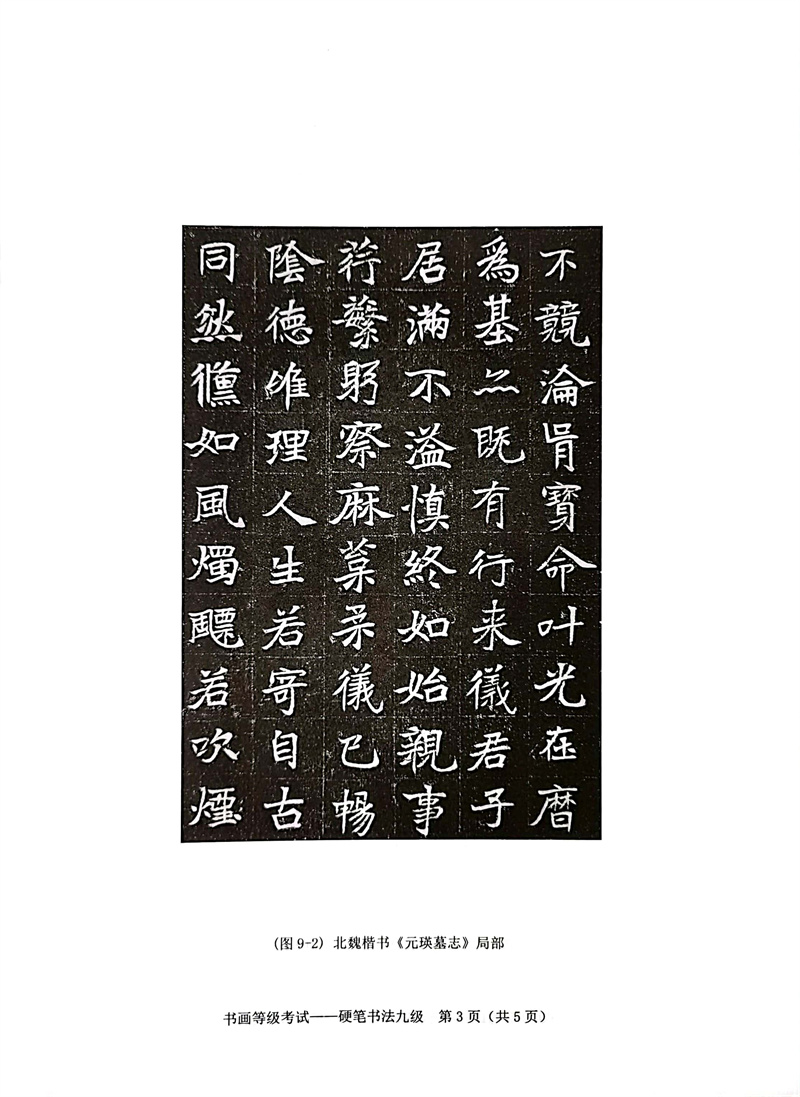 不競淪胥寶命叶光在曆
爲基亦既有行来儀君子
居滿不溢慎終如始親事
荇蘩躬察麻菜柔儀已暢
陰德唯理人生若寄自古
同然儵如風燭飃若吹煙
(图 9-2) 北魏楷书《元瑛墓志》局部
书画等级考试——硬笔书法九级 第 3 页（共 5 页）